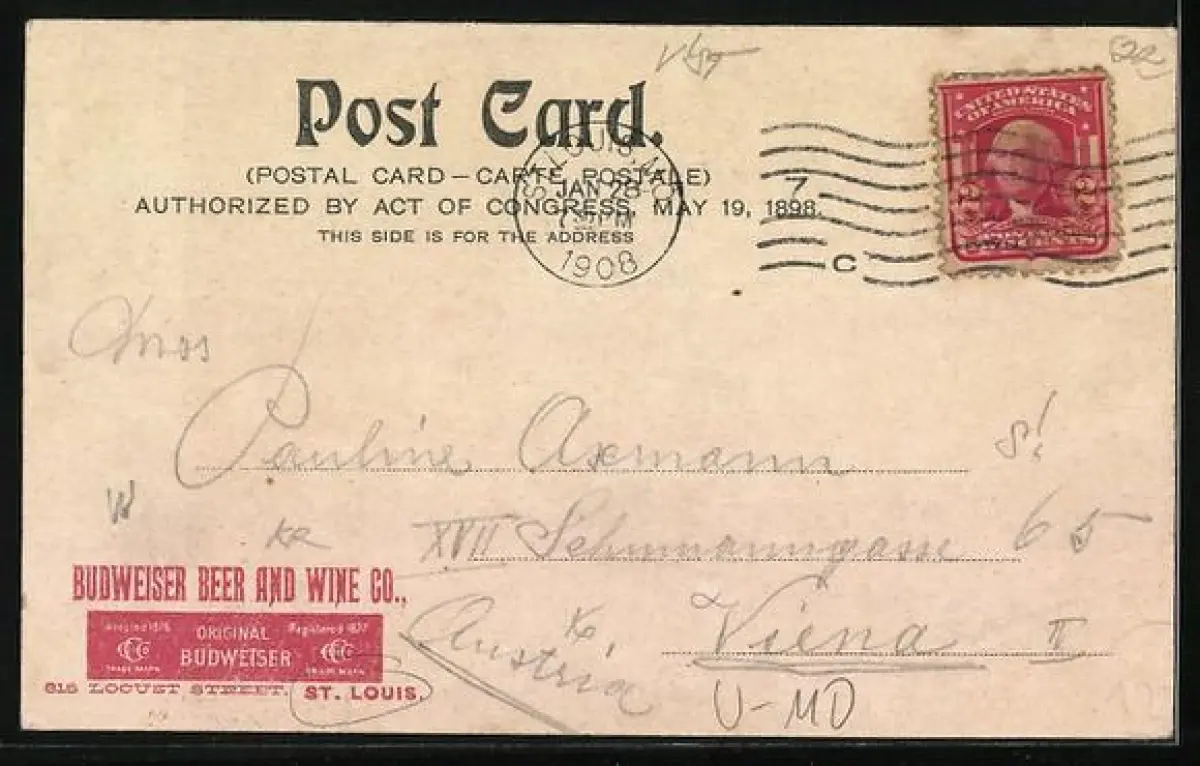 Post Card.
(POSTAL CARD — CARTE POSTALE)
AUTHORIZED BY ACT OF CONGRESS, MAY 19, 1898.
THIS SIDE IS FOR THE ADDRESS
ST. LOUIS, MO.
JAN 28
PM
1908
7
C
UNITED STATES
OF AMERICA
2 2
Miss
Pauline Axmann
XVII Schumanngasse 65
Viena II
Austria
U-MD
BUDWEISER BEER AND WINE CO.,
Adopted 1876
CCCo
TRADE MARK
ORIGINAL
BUDWEISER
Registered 1877
CCCo
TRADE MARK
615 LOCUST STREET, ST. LOUIS.